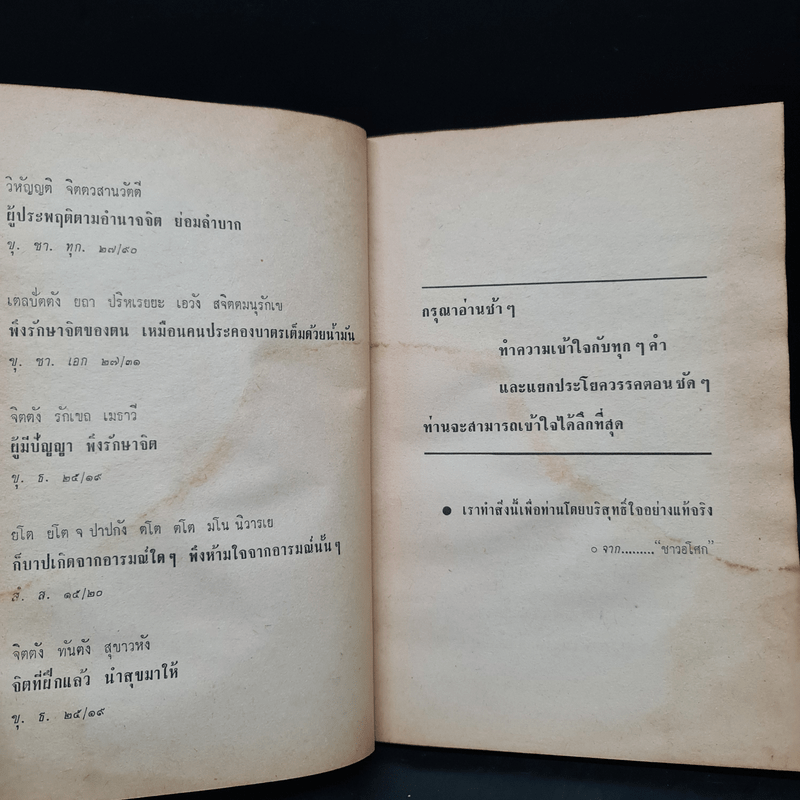 วิหัญญติ จิตตวสานวัตตี
ผู้ประพฤติตามอำนาจจิต ย่อมลำบาก
ขุ. ชา. ทุก. ๒๗/๙๐
เตลปัตตัง ยถา ปริหเรยยะ เอวัง สจิตตมนุรักเข
พึงรักษาจิตของตน เหมือนคนประคองบาตรเต็มด้วยน้ำมัน
ขุ. ชา. เอก ๒๗/๓๑
จิตตัง รักเขถ เมธาวี
ผู้มีปัญญา พึงรักษาจิต
ขุ. ธ. ๒๕/๑๙
ยโต ยโต จ ปาปกัง ตโต ตโต มโน นิวารเย
ก็บาปเกิดจากอารมณ์ใด ๆ พึงห้ามใจจากอารมณ์นั้น ๆ
สํ. ส. ๑๕/๒๐
จิตตัง ทันตัง สุขาวหัง
จิตที่ฝึกแล้ว นำสุขมาให้
ขุ. ธ. ๒๕/๑๙
กรุณาอ่านช้า ๆ
ทำความเข้าใจกับทุก ๆ คำ
และแยกประโยควรรคตอน ชัด ๆ
ท่านจะสามารถเข้าใจได้ลึกที่สุด
● เราทำสิ่งนี้เพื่อท่านโดยบริสุทธิ์ใจอย่างแท้จริง
๐ จาก........."ชาวอโศก"